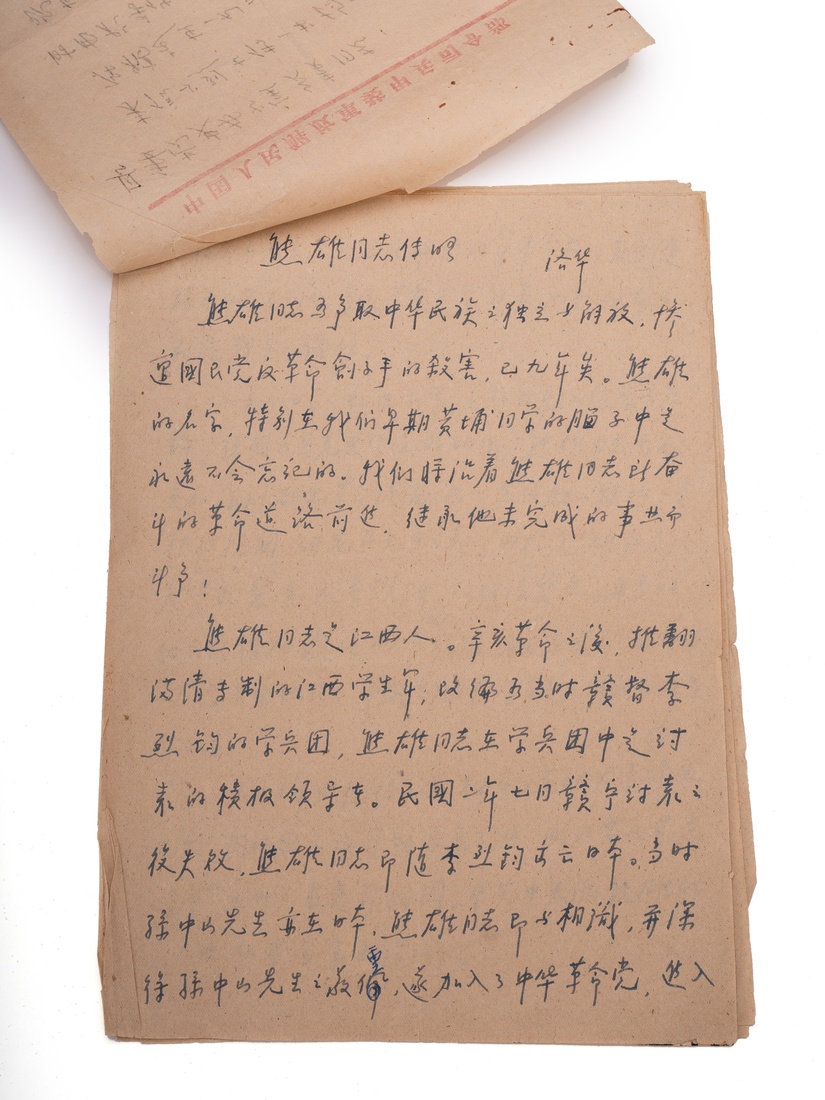 中国人民
熊雄同志传略
洛华
熊雄同志为争取中华民族之独立与解放，惨
遭國民党反革命刽子手的殺害，已九年矣。熊雄
的名字，特别在我们早期黄埔同学的脑子中是
永远不会忘记的。我们将沿着熊雄同志所奋
斗的革命道路前进，继承他未完成的事业而
斗争！
熊雄同志是江西人。辛亥革命之後，推翻
满清专制的江西学生军，改编为当时赣督李
烈钧的学兵团，熊雄同志在学兵团中是讨
袁的積极领导者。民國二年七月赣宁讨袁之
役失败，熊雄同志即随李烈钧亡去日本。当时
孫中山先生亦在日本，熊雄同志即与相識，并深
得孫中山先生之器，遂加入了中华革命党，进入